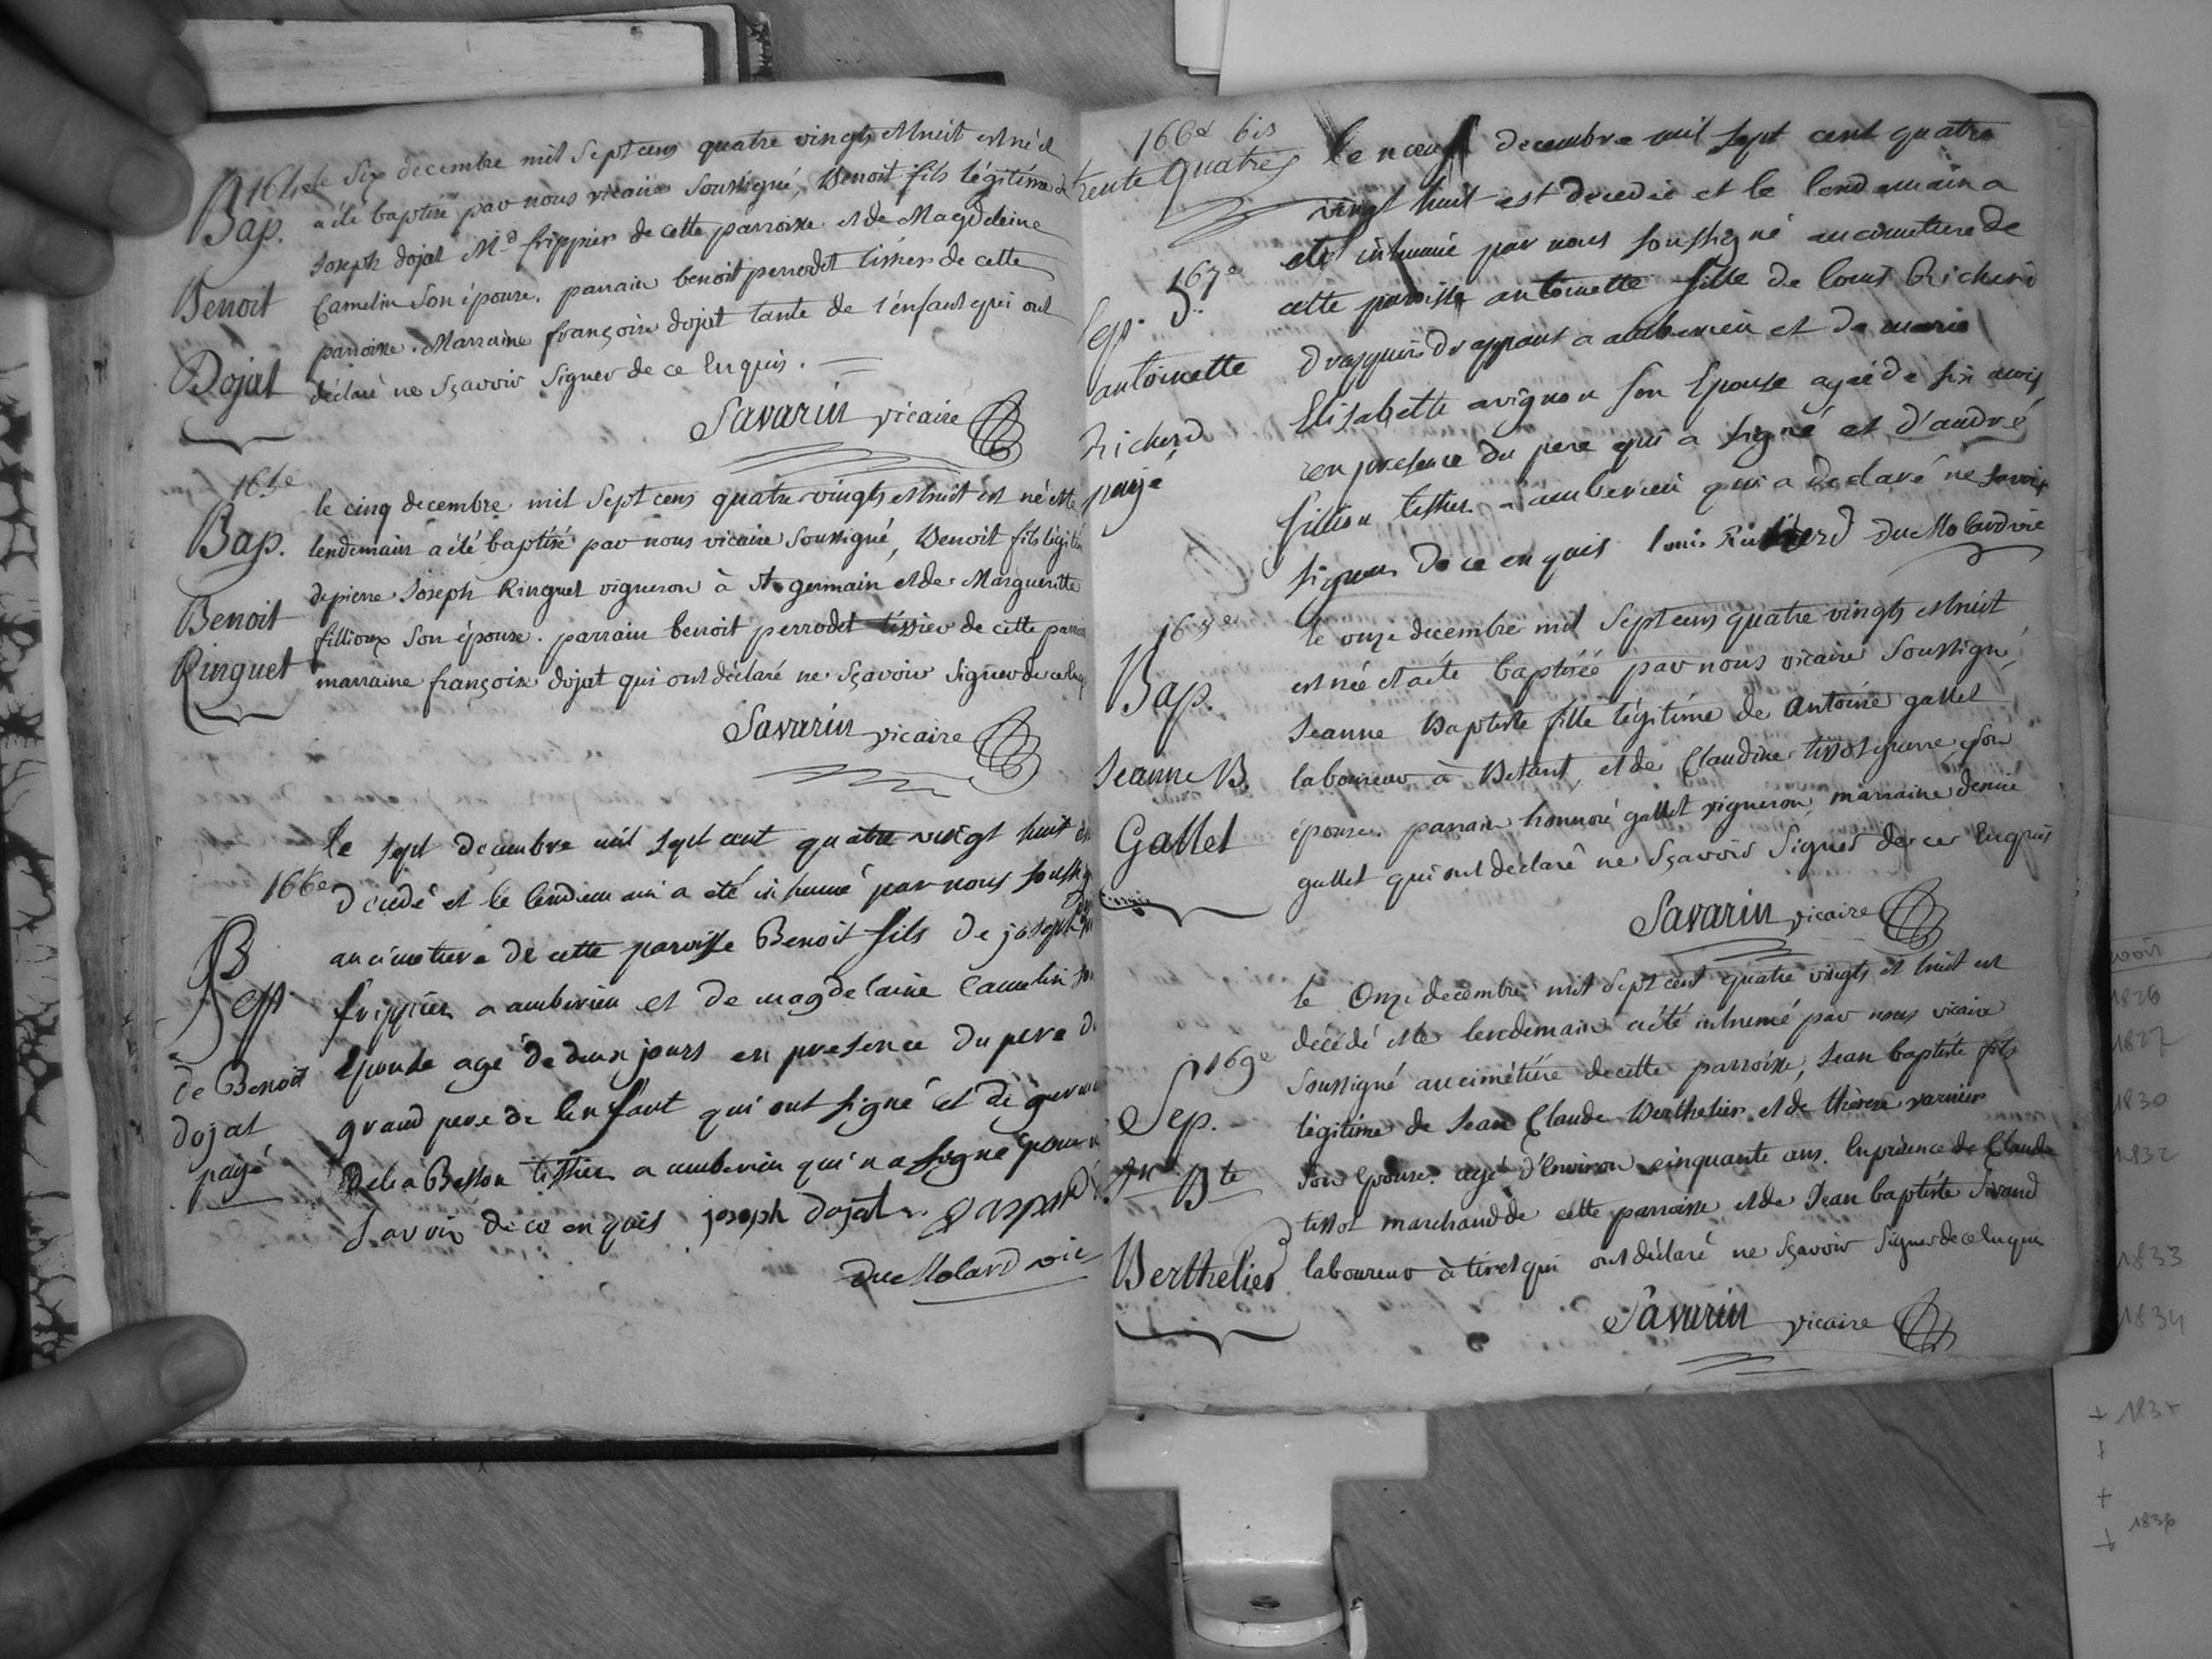 164e
Bap.
Benoit
Dojat
le six decembre mil sept cens quatre vingts et huit est né et
a été baptisé par nous vicaire soussigné, Benoit fils légitime de
Joseph dojat Md frippier de cette parroisse et de Magdeleine
Camelin son épouse. parrain benoit perrodet tissier de cette
parroisse. Marraine françoise dojat tante de l'enfant qui ont
déclaré ne sçavoir signer de ce Enquis.
Savarin vicaire
165e
Bap.
Benoit
Ringuet
le cinq decembre mil sept cens quatre vingts et huit est né et le
lendemain a été baptisé par nous vicaire soussigné, Benoit fils légitim
de pierre Joseph Ringuet vigneron à St germain et de Margueritte
fillioux son épouse. parrain benoit perrodet tissier de cette parroi
marraine françoise dojat qui ont déclaré ne sçavoir signer de ce
Savarin vicaire
166e
Sep
de Benoit
dojat
payé
le sept decembre mil sept cent quatre vingt huit est
decedé et le lendemain a eté inhumé par nous soussig
au cimetiere de cette paroisse Benoit fils de joseph
frippier a amberieu et de magdelaine Camelin son
Epouse agé de deux jours en presence du pere d
grand pere de l'enfant qui ont signé et de
Besson tissier a amberieu qui n a signé pour
savoir de ce enquis joseph dojat.
duMolard vic
166e bis
trente quatre
167e
Sep.
antoinette
Richerd
payé
le neuf decembre mil sept cent quatre
vingt huit est decedée et le lendemain a
eté inhumée par nous soussigné au cimetiere de
cette paroisse antoinette fille de louis Richerd
drappant a amberieu et de marie
Elisabette avignon son Epouse agée de six mois
en presence du pere qui a signé et d'andré
fillion tissier a amberieu qui a declaré ne savoir
signer de ce enquis louis Richerd duMolard vic
168e
Bap.
Jeanne B.
Gallet
le onze decembre mil sept cens quatre vingts et huit
est née et a été baptisée par nous vicaire soussigné,
Jeanne Baptiste fille légitime de Antoine gallet
laboureur à Betant, et de Claudine son
épouse. parrain honnoré gallet vigneron, marraine denise
gallet qui ont déclaré ne sçavoir signer de ce Enquis
Savarin vicaire
169e
Sep.
Jn Bte
Berthelier
le Onze decembre mil sept cent quatre vingts et huit est
décédé et le lendemain a été inhumé par nous vicaire
soussigné au cimétière de cette parroisse, Jean baptiste fils
légitime de Jean Claude Berthelier et de thérèse varnier
son épouse. agé d'Environ cinquante ans. En présence de Claude
tissot marchand de cette parroisse et de Jean baptiste
laboureur à tiret qui ont déclaré ne sçavoir signer de ce Enquis
Savarin vicaire
1826
1827
1830
1832
1833
1834
1836